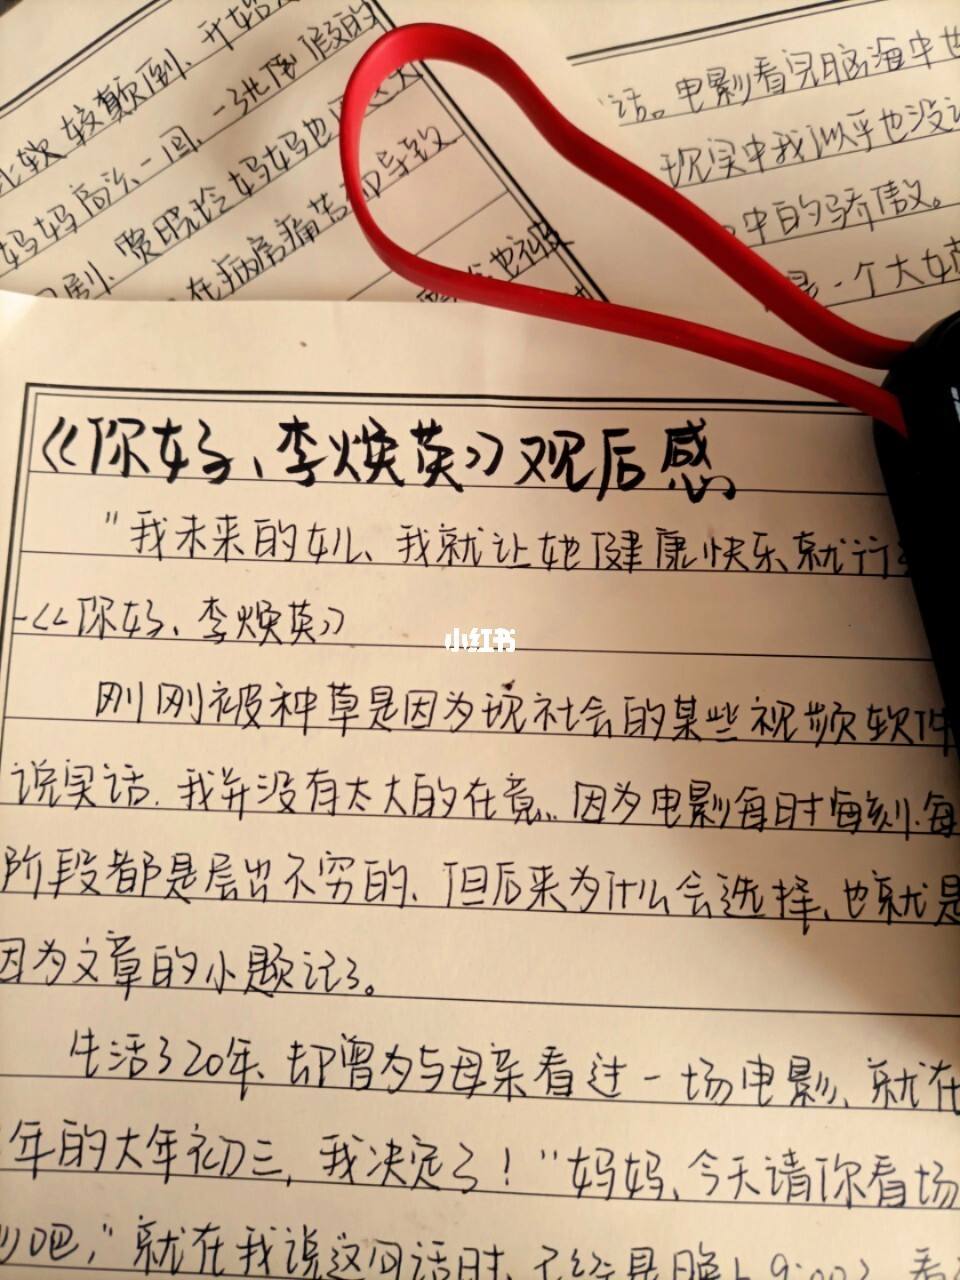 较颠倒、开始
妈妈高兴一回、一张假的
剧、贾晓玲妈妈也
在病房痛苦却导致
也让
话。电影看完脑海中
现实中我似乎也没
中的骄傲。
是一个大
《你好、李焕英》观后感
"我未来的女儿、我就让她健康快乐就行
-《你好、李焕英》
小红书
刚刚被种草是因为现社会的某些视频软件
说实话、我并没有太大的在意、因为电影每时每刻、每
阶段都是层出不穷的、但后来为什么会选择、也就是
因为文章的小题记了。
生活了20年、却曾为与母亲看过一场电影、就在
年的大年初三,我决定了!"妈妈、今天请你看场
吧,"就在我说这句话时、已经是晚上9:00了、看